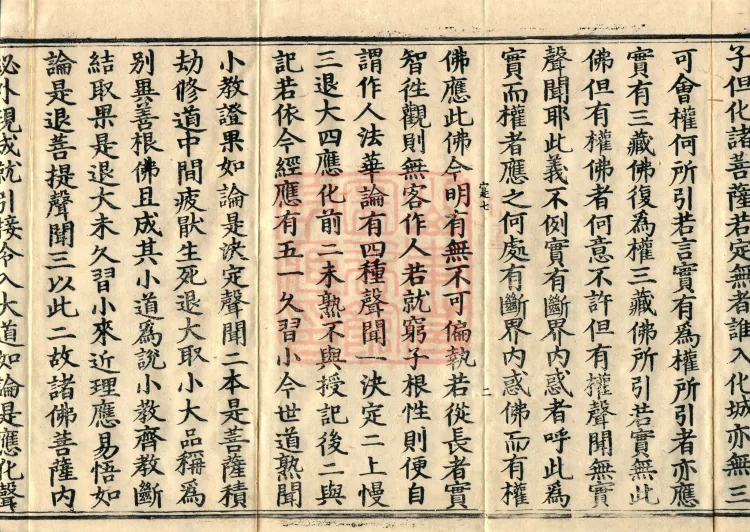 子但化諸菩薩若定無者誰入化城亦無三
可會權何所引若言實有爲權所引者亦應
實有三藏佛復爲權三藏佛所引若實無此
佛但有權佛者何意不許但有權聲聞無實
聲聞耶此義不例實有斷界內惑者呼此爲
實而權者應之何處有斷界內惑佛而有權
佛應此佛今明有無不可偏執若從長者實
智徃觀則無客作人若就窮子根性則便自
謂作人法華論有四種聲聞一決定二上慢
三退大四應化前二未熟不與授記後二與
記若依今經應有五一久習小今世道熟聞
小教證果如論是決定聲聞二本是菩薩積
劫修道中間疲猒生死退大取小大品稱爲
別異善根佛且成其小道爲說小教齊教斷
結取果是退大未久習小來近理應易悟如
論是退菩提聲聞三以此二故諸佛菩薩內
祕外現成就引接令入大道如論是應化聲
二